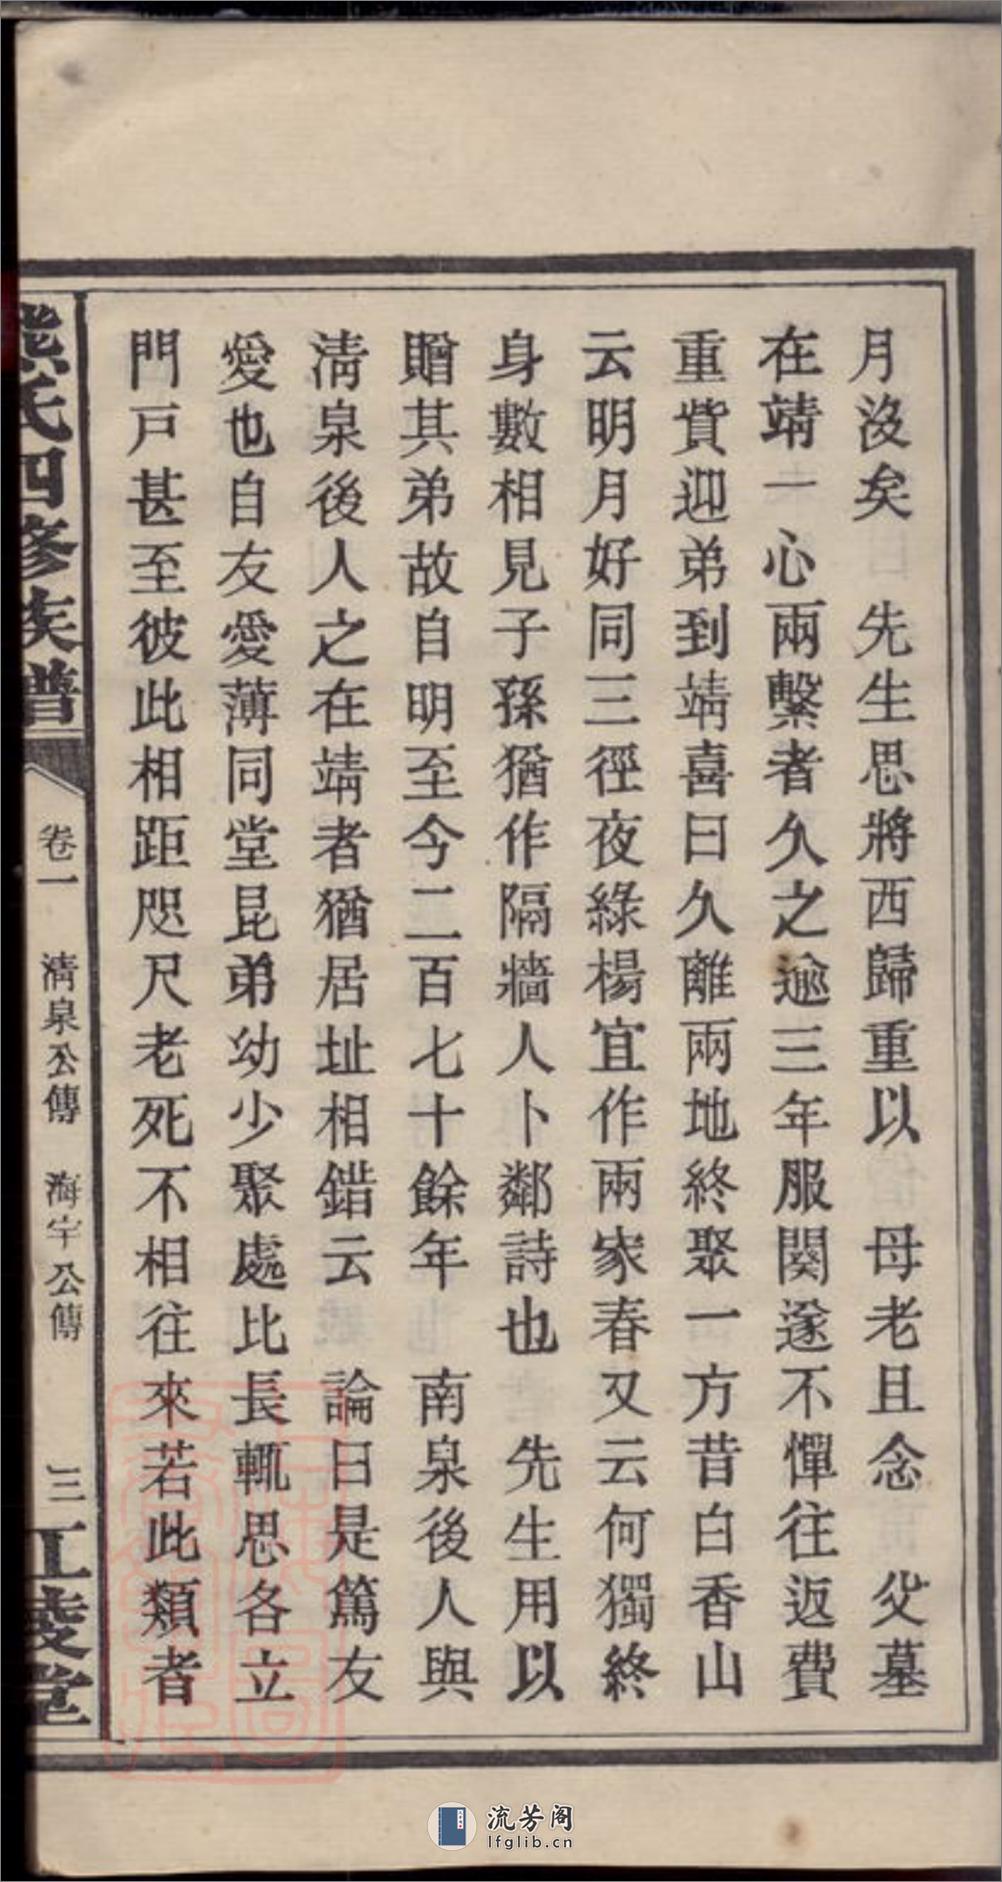 月沒矣　先生思將西歸重以　母老且念　父墓
在靖一心兩繫者久之逾三年服闋遂不憚往返費
重貲迎弟到靖喜曰久離兩地終聚一方昔白香山
云明月好同三徑夜綠楊宜作兩家春又云何獨終
身數相見子孫猶作隔牆人卜鄰詩也　先生用以
贈其弟故自明至今二百七十餘年　南泉後人與
淸泉後人之在靖者猶居址相錯云　論曰是篤友
愛也自友愛薄同堂昆弟幼少聚處比長輒思各立
門戸甚至彼此相距咫尺老死不相往來若此類者
熊氏四修族譜　卷一　淸泉公傳　海宇公傳　三　江陵堂
流芳阁
lfglib.cn